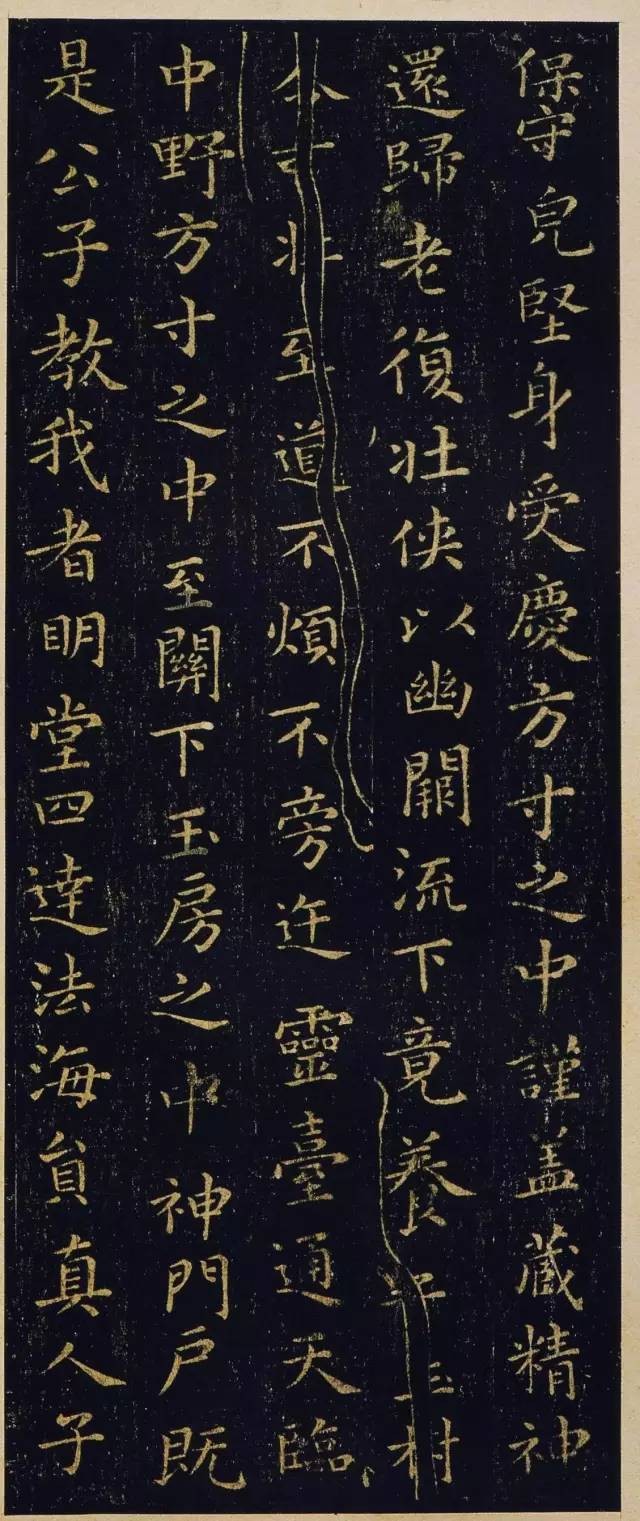 保守皃堅身受慶方寸之中謹盖藏精神
還歸老復壯侠以幽闕流下竟養子玉树
令可壯至道不煩不旁迕靈臺通天臨
中野方寸之中至關下玉房之中神門户既
是公子教我者明堂四達法海員真人子